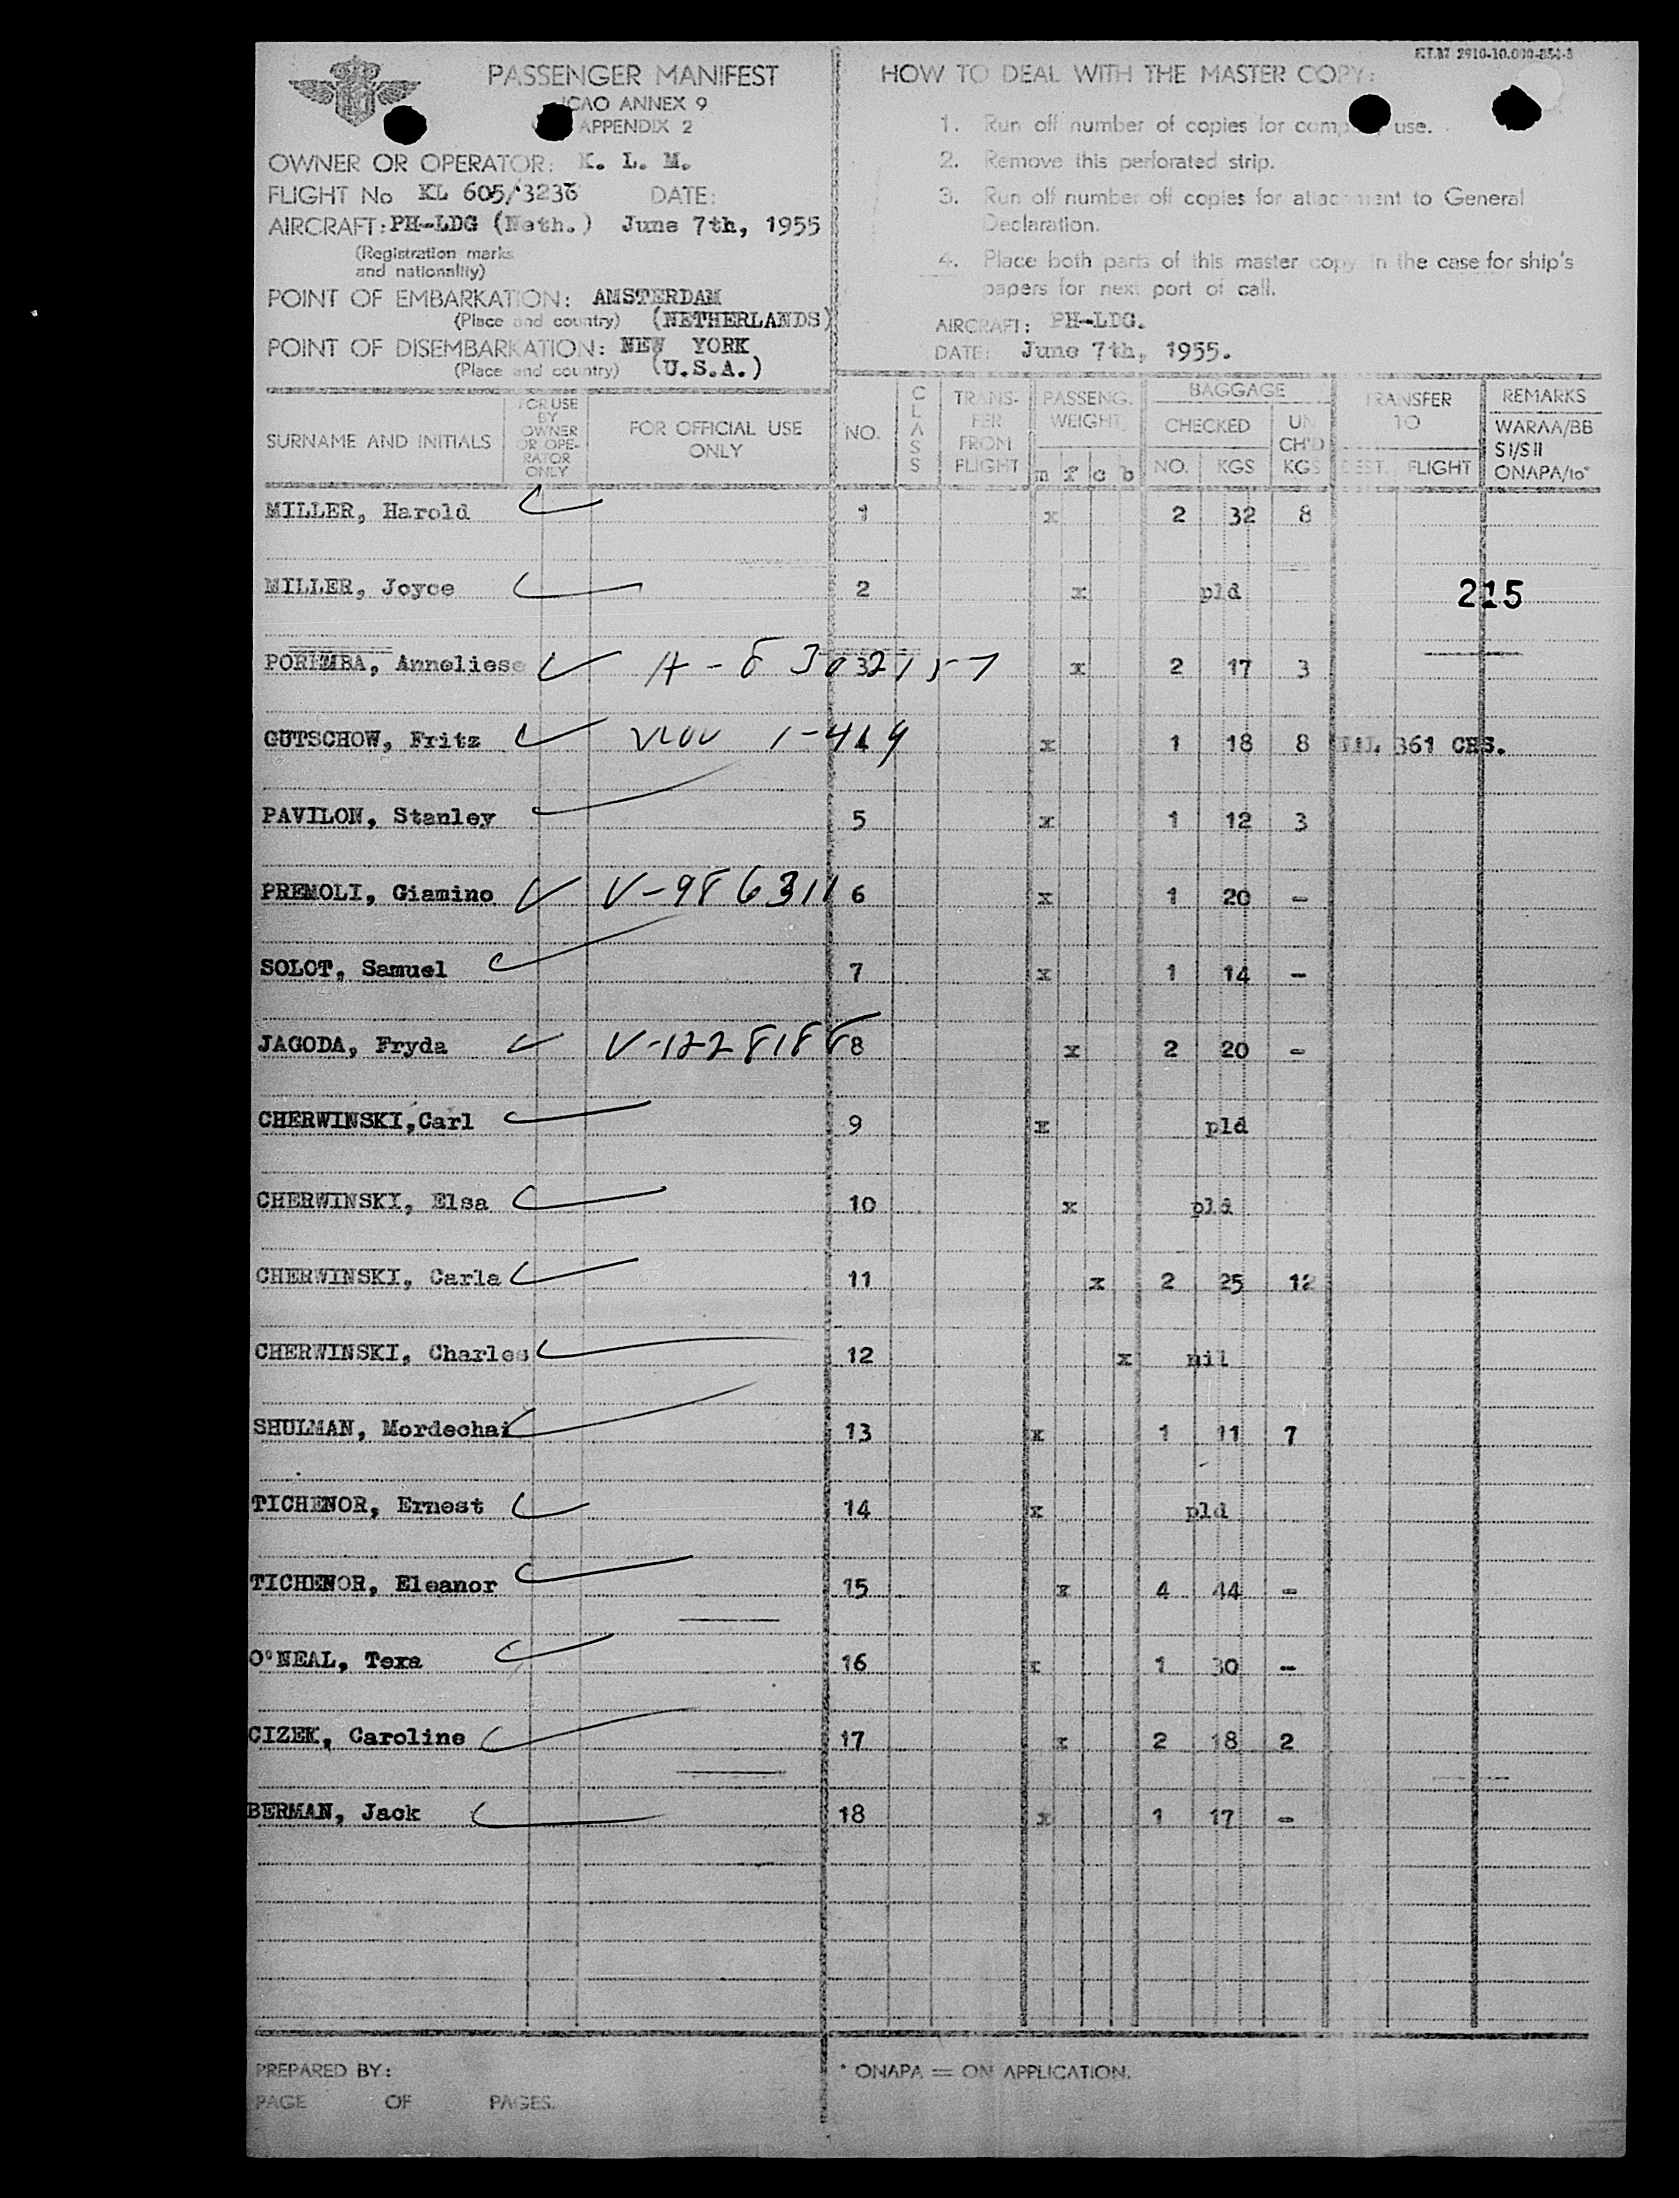 PASSENGER MANIFEST
ICAO ANNEX 9
APPENDIX 2
OWNER OR OPERATOR: K. L. M.
FLIGHT No KL 605/3236 DATE:
AIRCRAFT: PH-LDG (Neth.) June 7th, 1955
(Registration marks
and nationality)
POINT OF EMBARKATION: AMSTERDAM
(Place and country) (NETHERLANDS)
POINT OF DISEMBARKATION: NEW YORK
(Place and country) (U.S.A.)
HOW TO DEAL WITH THE MASTER COPY:
1. Run off number of copies for company use.
2. Remove this perforated strip.
3. Run off number off copies for attachment to General
Declaration.
4. Place both parts of this master copy in the case for ship's
papers for next port of call.
AIRCRAFT: PH-LDG.
DATE: June 7th, 1955.
SURNAME AND INITIALS
FOR USE
BY
OWNER
OR OPE-
RATOR
ONLY
FOR OFFICIAL USE
ONLY
NO.
CLASS
TRANS-
FER
FROM
FLIGHT
PASSENG.
WEIGHT
m f c b
BAGGAGE
CHECKED
NO. KGS
UN
CH'D
KGS
TRANSFER
TO
DEST. FLIGHT
REMARKS
WARAA/BB
SI/SII
ONAPA/to*
MILLER, Harold 1 x 2 32 8
MILLER, Joyce 2 x pld
215
PORIMBA, Anneliese 3 x 2 17 3
GUTSCHOW, Fritz 4 x 1 18 8 361 CHS.
PAVILON, Stanley 5 x 1 12 3
PREMOLI, Giamino V-986311 6 x 1 20 -
SOLOT, Samuel 7 x 1 14 -
JAGODA, Fryda V-1228188 8 x 2 20 -
CHERWINSKI,Carl 9 x pld
CHERWINSKI, Elsa 10 x pld
CHERWINSKI, Carla 11 x 2 25 12
CHERWINSKI, Charles 12 x nil
SHULMAN, Mordechai 13 x 1 11 7
TICHENOR, Ernest 14 x pld
TICHENOR, Eleanor 15 x 4 44 -
O'NEAL, Texa 16 x 1 30 -
CIZEK, Caroline 17 x 2 18 2
BERMAN, Jack 18 x 1 17 -
PREPARED BY:
PAGE OF PAGES.
* ONAPA = ON APPLICATION.